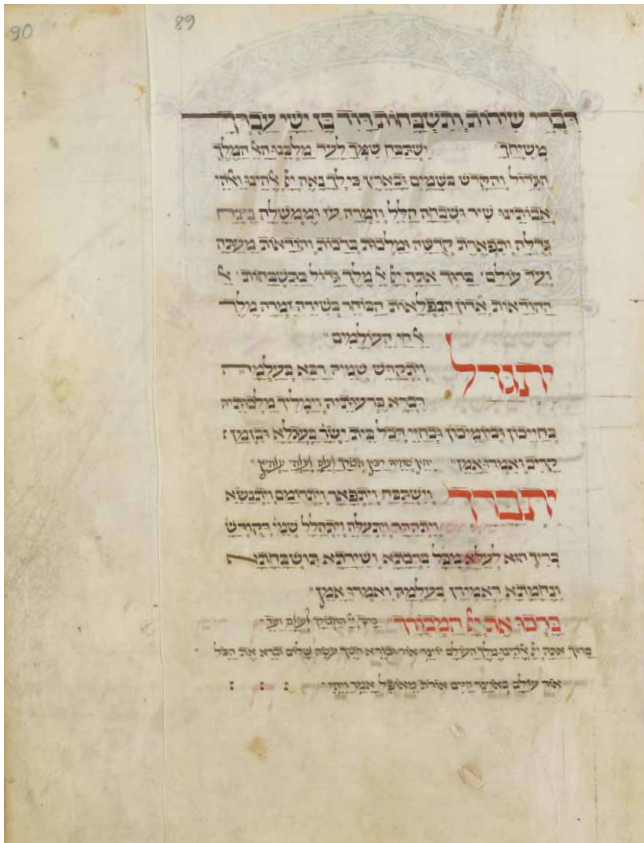 90
89
דִּבְרֵי שִׁירוֹת וְתִשְׁבָּחוֹת דָּוִד בֶּן יִשַׁי עַבְדְּךָ
מְשִׁיחֶךָ יִשְׁתַּבַּח שִׁמְךָ לָעַד מַלְכֵּנוּ הָאֵ הַמֶּלֶךְ
הַגָּדוֹל וְהַקָּדֹשׁ בַּשָּׁמַיִם וּבָאָרֶץ כִּי לְךָ נָאֶה יְיָ אֱלֹהֵינוּ וֵאלֹהֵי
אֲבוֹתֵינוּ שִׁיר וּשְׁבָחָה הַלֵּל וְזִמְרָה עֹז וּמֶמְשָׁלָה נֶצַח
גְּדֻלָּה וְתִפְאֶרֶת קְדֻשָּׁה וּמַלְכוּת בְּרָכוֹת וְהוֹדָאוֹת מֵעַתָּה
וְעַד עוֹלָם בָּרוּךְ אַתָּה יְיָ אֵל מֶלֶךְ גָּדוֹל בַּתִּשְׁבָּחוֹת אֵל
הַהוֹדָאוֹת אֲדוֹן הַנִּפְלָאוֹת הַבּוֹחֵר בְּשִׁירֵי זִמְרָה מֶלֶךְ
אֵל חֵי הָעוֹלָמִים
יִתְגַּדַּל וְיִתְקַדַּשׁ שְׁמֵיהּ רַבָּא בְּעָלְמָא דִּי
בְרָא כִּרְעוּתֵיהּ וְיַמְלִיךְ מַלְכוּתֵיהּ
בְּחַיֵּיכוֹן וּבְיוֹמֵיכוֹן וּבְחַיֵּי דְכָל בֵּית יִשְׂרָ בַּעֲגָלָא וּבִזְמַן
קָרִיב וְאִמְרוּ אָמֵן
יִתְבָּרַךְ וְיִשְׁתַּבַּח וְיִתְפָּאַר וְיִתְרוֹמַם וְיִתְנַשֵּׂא
וְיִתְהַדַּר וְיִתְעַלֶּה וְיִתְהַלַּל שְׁמֵיהּ דְּקוּדְשָׁ
בְּרִיךְ הוּא לְעֵלָּא מִכָּל בִּרְכָתָא וְשִׁירָתָא תֻּושְׁבְּחָתָא
וְנֶחֱמָתָא דַּאֲמִירָן בְּעָלְמָא וְאִמְרוּ אָמֵן
בָּרְכוּ אֶת יְיָ הַמְבוֹרָךְ
בָּרוּךְ אַתָּה יְיָ אֱלֹהֵינוּ מֶלֶךְ הָעוֹלָם יוֹצֵר אוֹר וּבוֹרֵא חֹשֶׁךְ עֹשֶׂה שָׁלוֹם וּבוֹרֵא אֶת הַכֹּל
אוֹר עוֹלָם בְּאוֹצַר חַיִּים אוֹרוֹת מֵאוֹפֶל אָמַר וַיֶּהִי